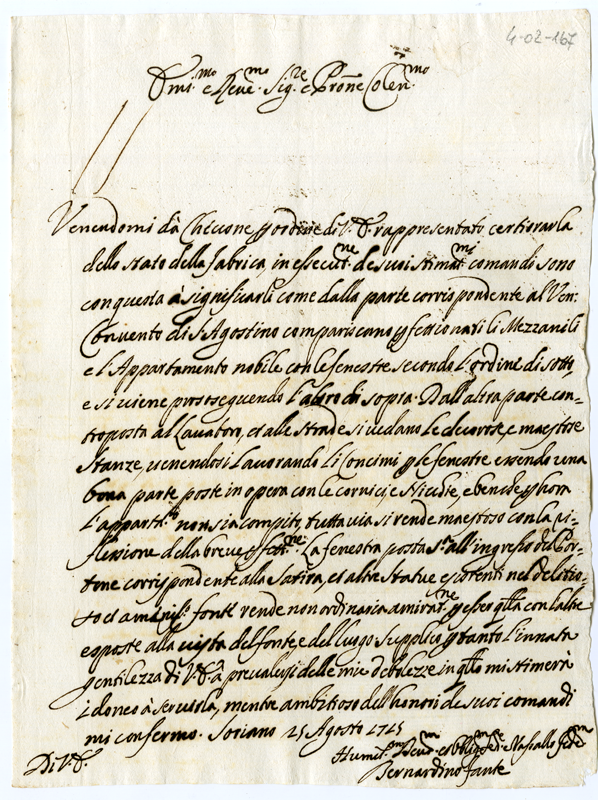 4-02-167
Emi.mo e Reve.mo Sig.re e Prone Colen.mo
Venendomi da Checcone p ordine di V. E. rappresentato, certiorarla
dello stato della fabrica, in essecut.ne de suoi stimat.mi comandi sono
con questa à significarli come dalla parte corrispondente al Ven:
Convento di S. Agostino compariscano perfettionari li Mezzanili
e l'Appartamento nobile con le fenestre secondo l'ordine di sotto,
e si viene proseguendo l'altro di sopra. Dall'altra parte con=
troposta al Lavator, et alle Strade si vedano le decorose, e maestose
Stanze, venendosi lavorando li Concimi p le fenestre essendo una
bona parte poste in opera con le cornici, e Nicchie, e benche p hora
l'appart.to non sia compito, tuttavia si rende maestoso con la ri=
flessione della breve
La fenestra posta all'ingresso del Por=
tone corrispondente alla Satira, et altre Statue esistenti nel delitio=
so et fonte rende non ordinaria amirat.ne p esser qlla con l'altre
esposte alla vista del fonte, e del luogo. Supplico p tanto l'innata
gentilezza di V. E. à prevalersi delle mie debolezze in qllo mi stimerà
idoneo à servirla, mentre ambitioso dell'honore de suoi comandi
mi confermo. Soriano 25 Agosto 1715
Di V. E.
Humil.mo Devo.mo et Oblig.mo Vassallo
Bernardino Fante